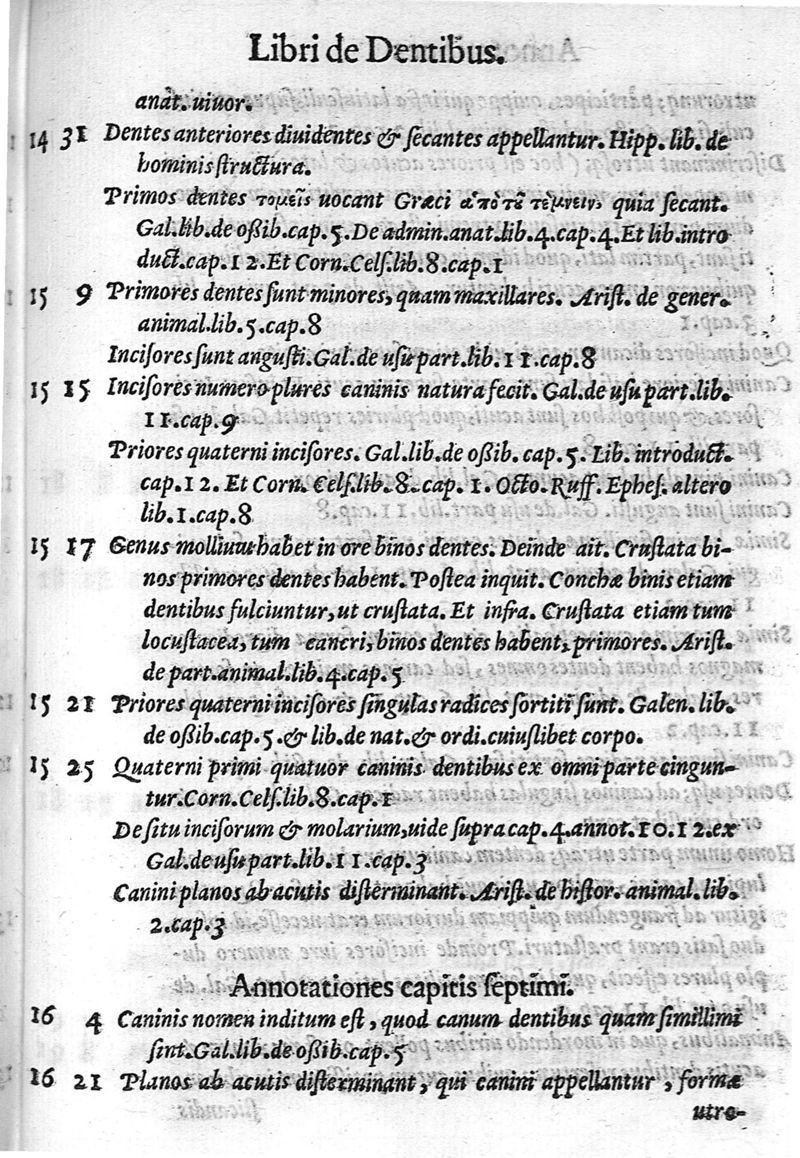 Libri de Dentibus.
anat. uiuor.
14 31 Dentes anteriores diuidentes & ſecantes appellantur. Hipp. lib. de
hominis ſtructura.
Primos dentes τομεῖς uocant Græci ἀπὸ τοῦ τέμνειν, quia ſecant.
Gal. lib. de oßib. cap. 5. De admin. anat. lib. 4. cap. 4. Et lib. intro
duct. cap. 12. Et Corn. Celſ. lib. 8. cap. 1
15 9 Primores dentes ſunt minores, quam maxillares. Ariſt. de gener.
animal. lib. 5. cap. 8
Inciſores ſunt anguſti. Gal. de uſu part. lib. 11. cap. 8
15 15 Inciſores numero plures caninis natura fecit. Gal. de uſu part. lib.
11. cap. 9
Priores quaterni inciſores. Gal. lib. de oßib. cap. 5. Lib. introduct.
cap. 12. Et Corn. Celſ. lib. 8. cap. 1. Octo. Ruff. Epheſ. altero
lib. 1. cap. 8
15 17 Genus mollium habet in ore binos dentes. Deinde ait. Cruſtata bi-
nos primores dentes habent. Poſtea inquit. Conchæ binis etiam
dentibus fulciuntur, ut cruſtata. Et infra. Cruſtata etiam tum
locuſtacea, tum cancri, binos dentes habent, primores. Ariſt.
de part. animal. lib. 4. cap. 5
15 21 Priores quaterni inciſores ſingulas radices ſortiti ſunt. Galen. lib.
de oßib. cap. 5. & lib. de nat. & ordi. cuiuſlibet corpo.
15 25 Quaterni primi quatuor caninis dentibus ex omni parte cingun-
tur. Corn. Celſ. lib. 8. cap. 1
De ſitu inciſorum & molarium, uide ſupra cap. 4. annot. 10. 12. ex
Gal. de uſu part. lib. 11. cap. 3
Canini planos ab acutis diſterminant. Ariſt. de hiſtor. animal. lib.
2. cap. 3
Annotationes capitis ſeptimi.
16 4 Caninis nomen inditum eſt, quod canum dentibus quam ſimillimi
ſint. Gal. lib. de oßib. cap. 5
16 21 Planos ab acutis diſterminant, qui canini appellantur, formæ
utro-